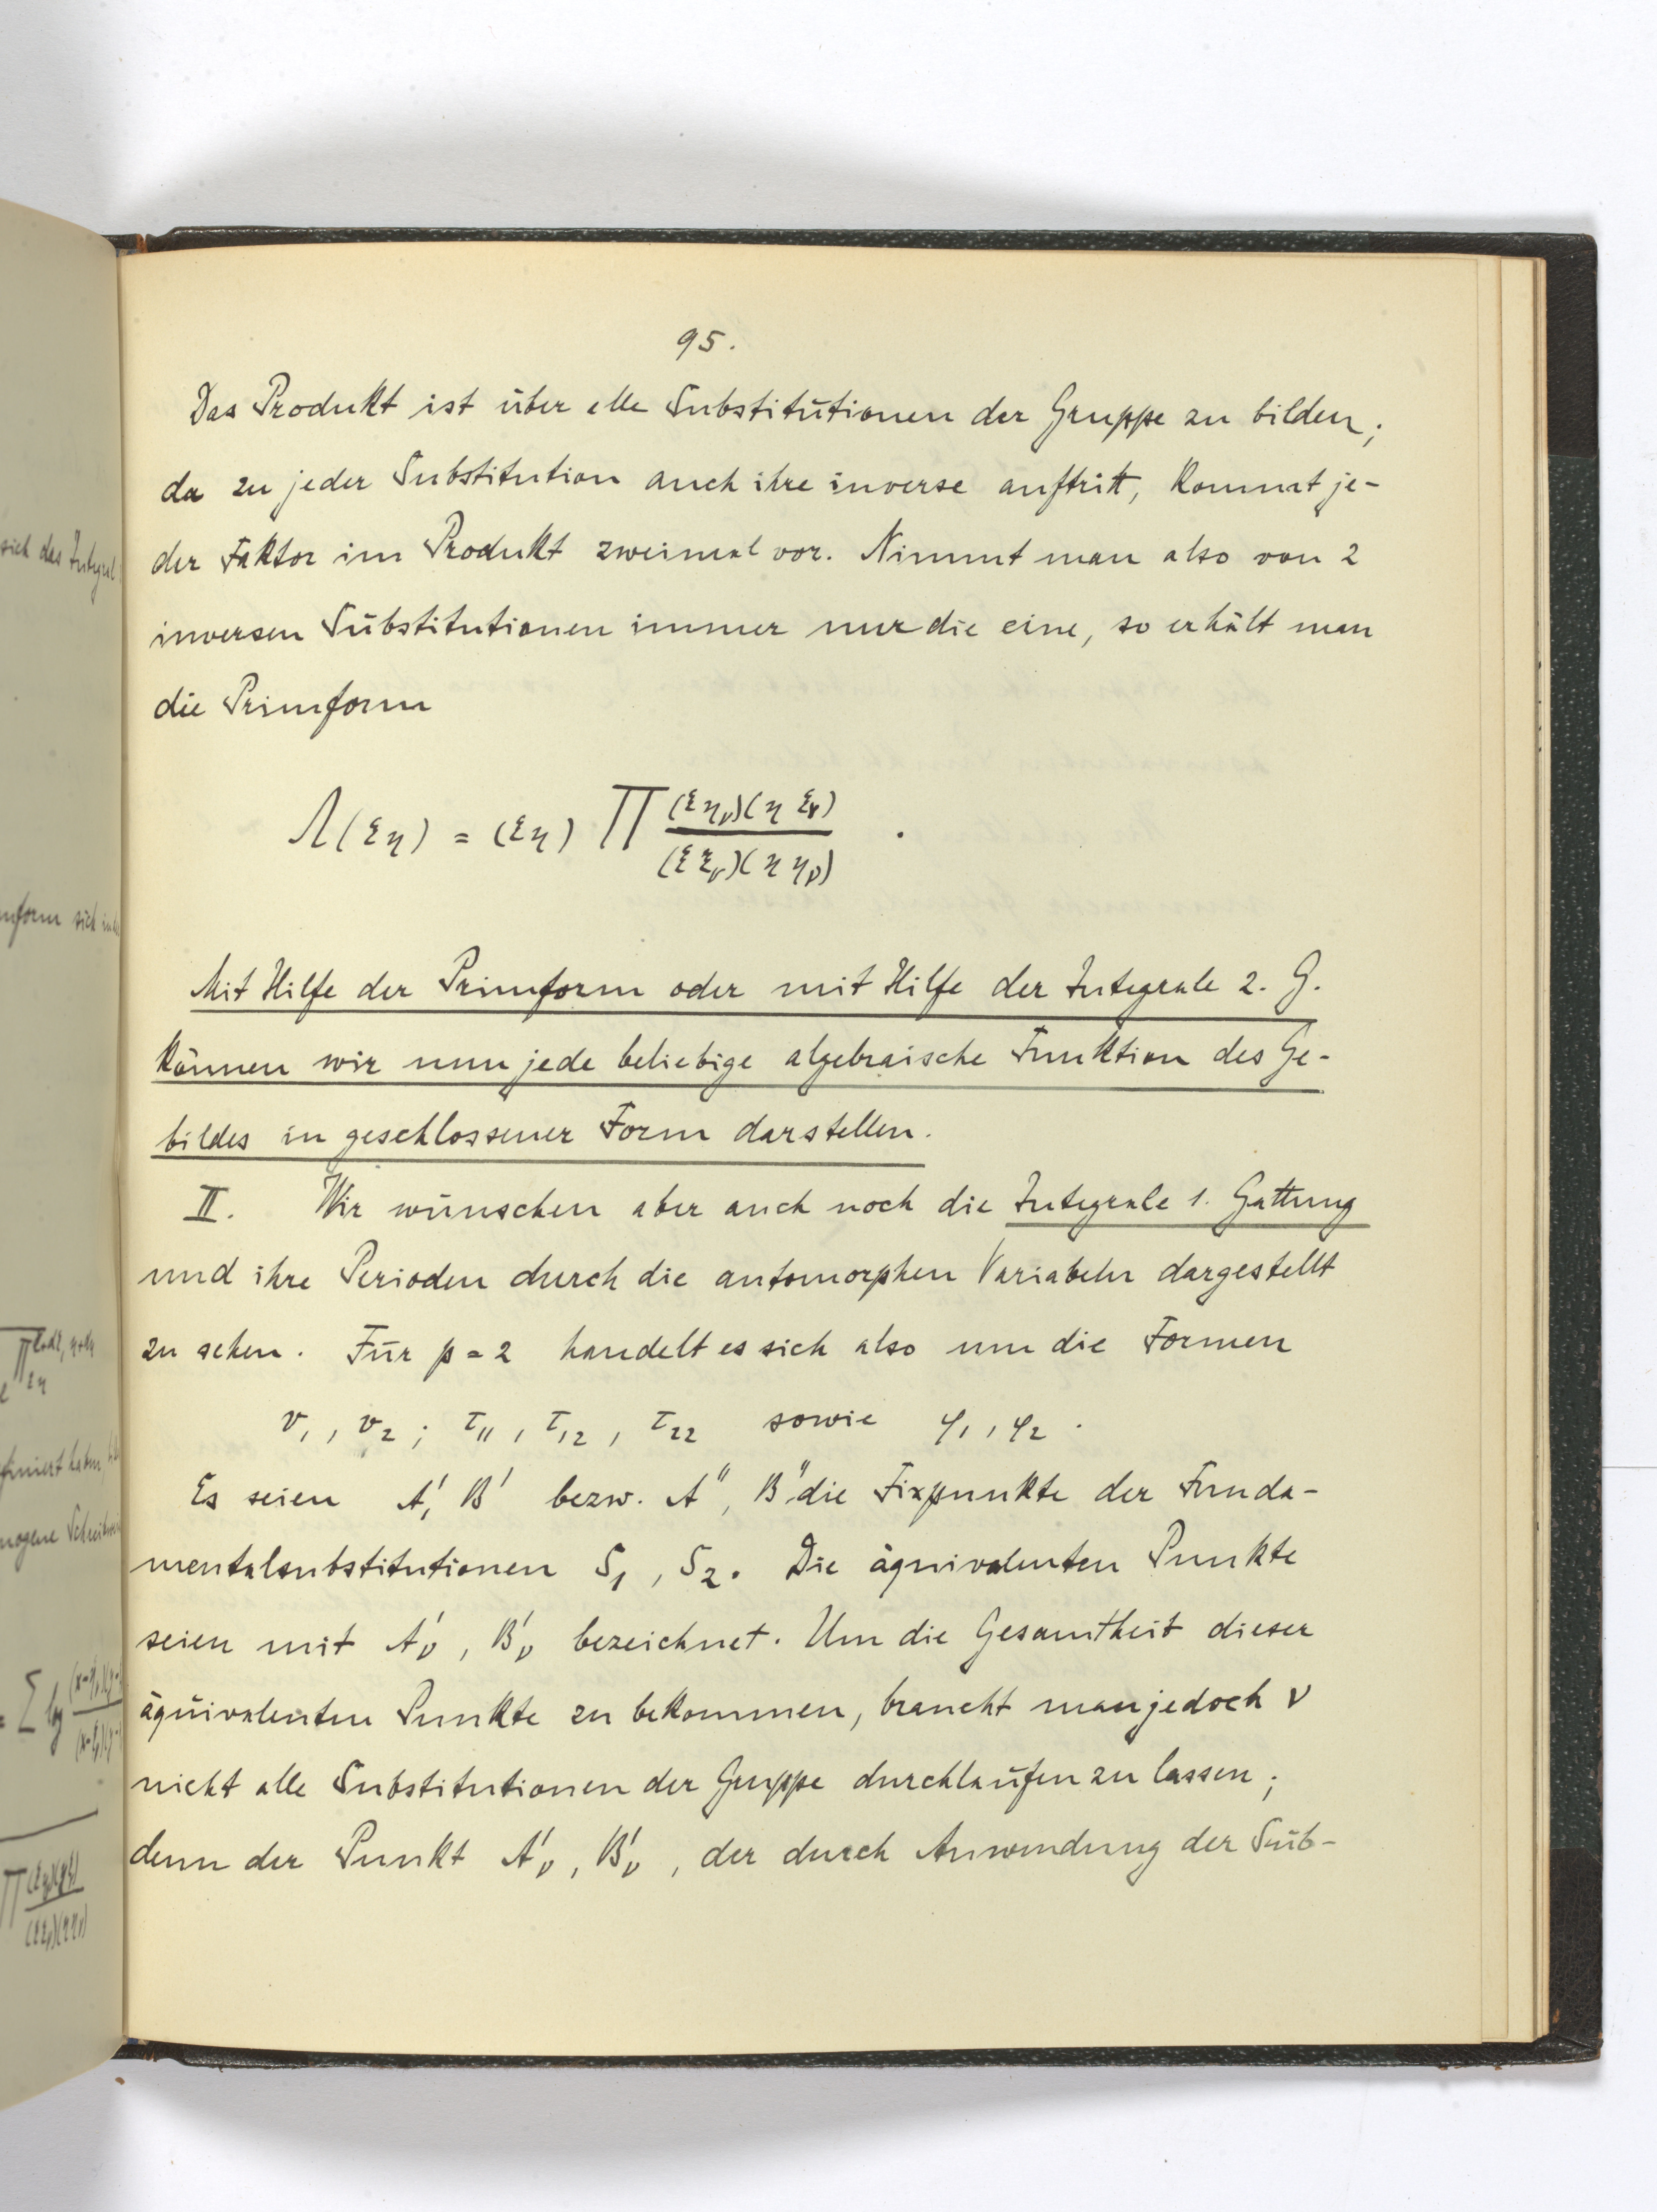 95.
Das Produkt ist über alle Substitutionen der Gruppe zu bilden;
da zu jeder Substitution auch ihre inverse auftritt, kommt je-
der Faktor im Produkt zweimal vor. Nimmt man also von 2
inversen Substitutionen immer nur die eine, so erhält man
die Primform
Λ(ξη) = (ξη) ∏ (ξη_ν)(η ξ_ν) / (ξ ξ_ν)(η η_ν) .
Mit Hilfe der Primform oder mit Hilfe der Integrale 2. G.
können wir nun jede beliebige algebraische Funktion des Ge-
bildes in geschlossener Form darstellen.
II. Wir wünschen aber auch noch die Integrale 1. Gattung
und ihre Perioden durch die automorphen Variabeln dargestellt
zu sehen. Für p = 2 handelt es sich also um die Formen
v₁, v₂; τ₁₁, τ₁₂, τ₂₂ sowie φ₁, φ₂.
Es seien A', B' bezw. A'', B'' die Fixpunkte der Funda-
mentalsubstitutionen S₁, S₂. Die äquivalenten Punkte
seien mit A'_ν, B'_ν bezeichnet. Um die Gesamtheit dieser
äquivalenten Punkte zu bekommen, braucht man jedoch ν
nicht alle Substitutionen der Gruppe durchlaufen zu lassen;
denn der Punkt A'_ν, B'_ν, der durch Anwendung der Sub-
sich das Integral
finiert haben,